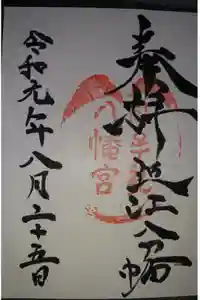 奉拝 近江八幡
八幡宮
令和元年八月二十五日